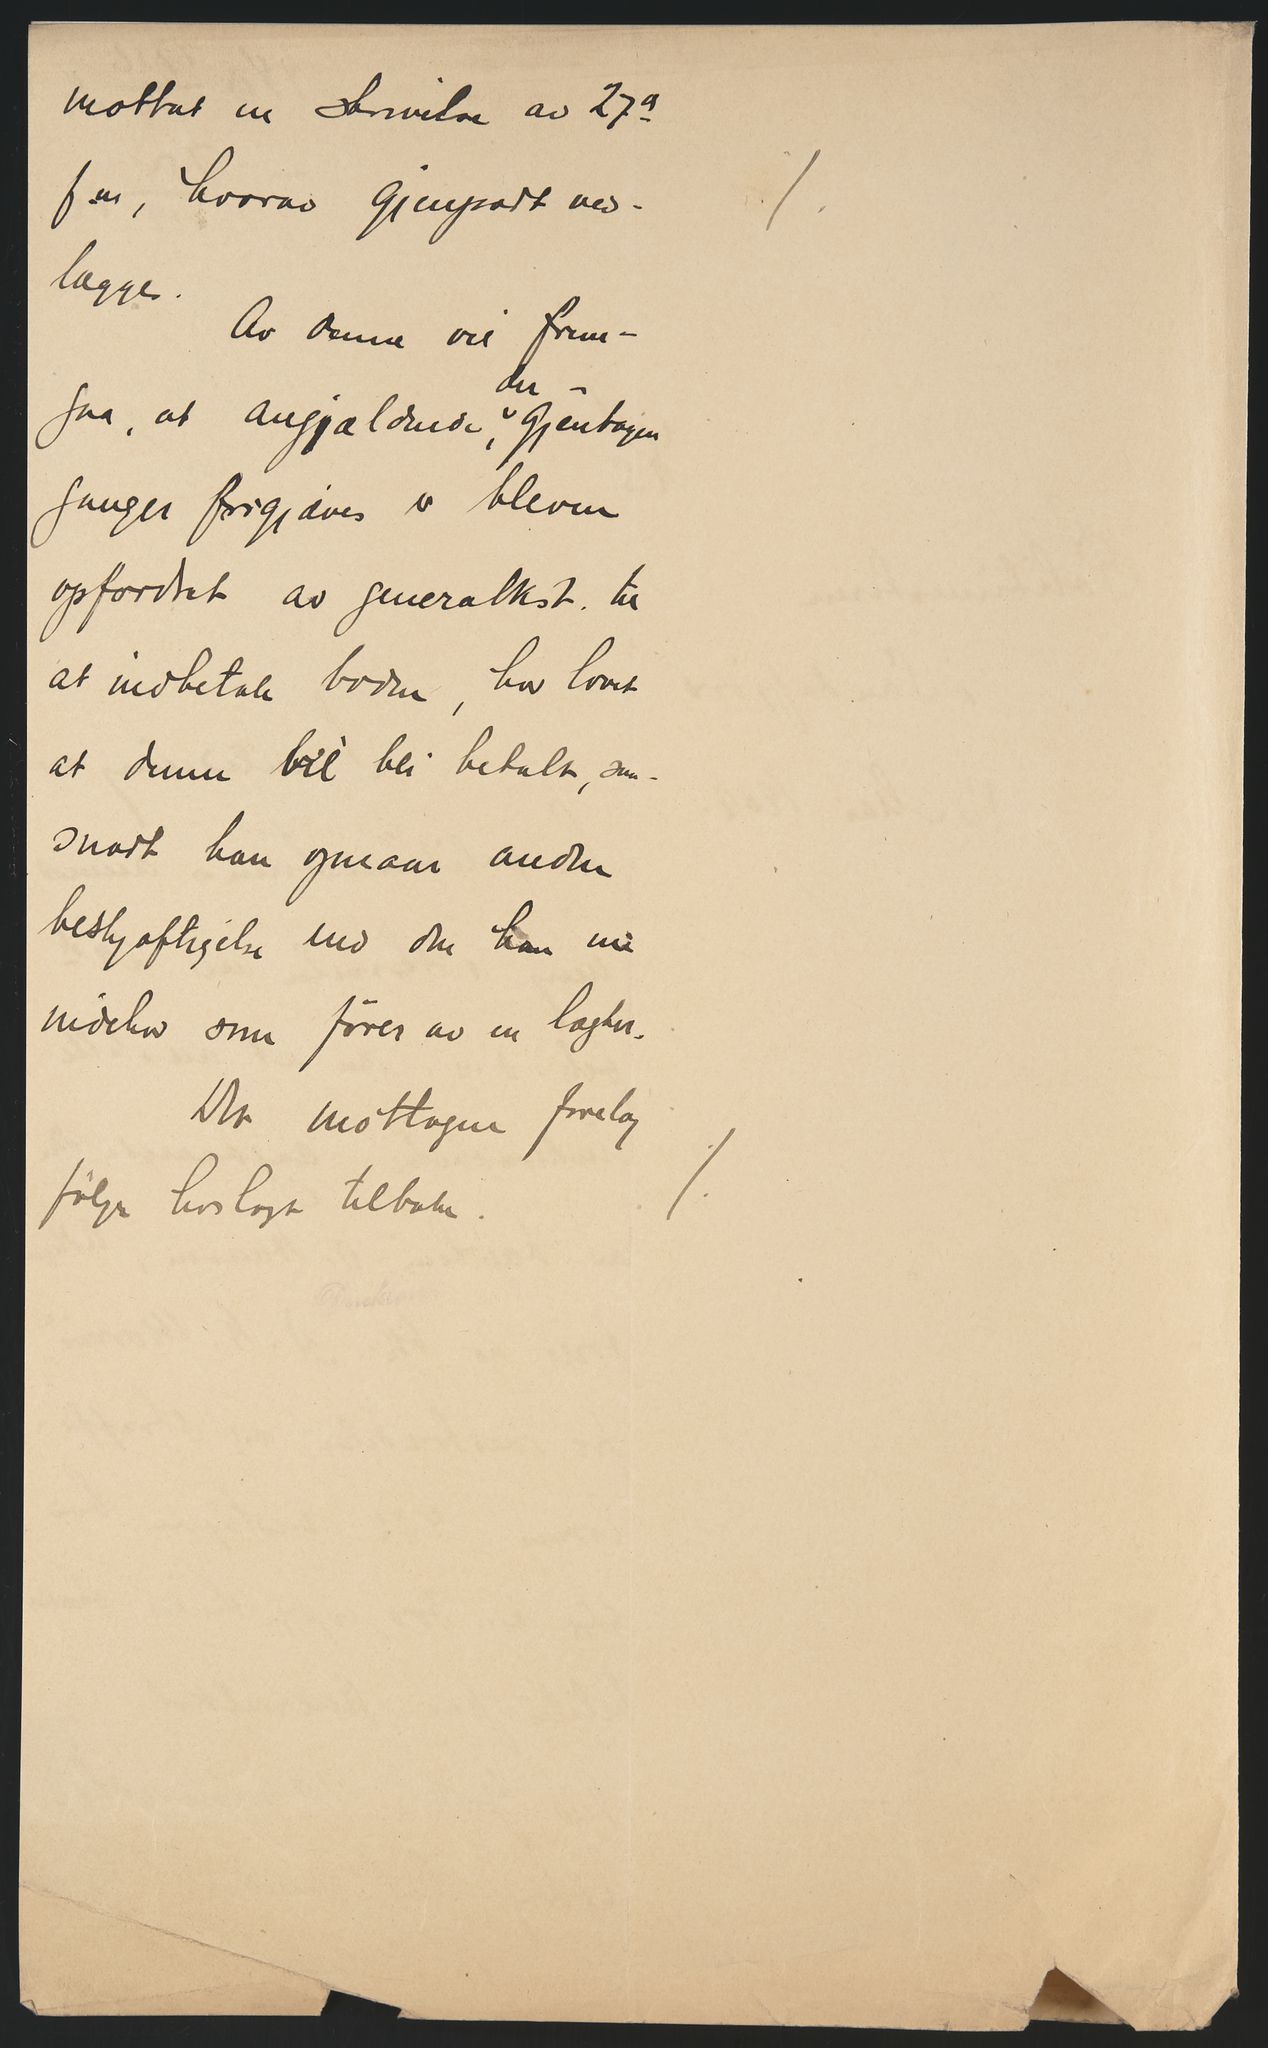 mottat en skrivelse av 27ᵃ
f.m., hvorav gjenpart ved- ⁒
lægges.
Av denne vil frem-
gaa, at angjældende, der gjentagen
ganger forgjæves er bleven
opfordret av generalkst. til
at indbetale boden, har lovet
at denne vil bli betalt, saa-
snart han opnaar anden
beskjæftigelse end den han nu
indehar som fører av en lægter.
Det mottagne forelæg
følger hoslagt tilbake. ⁒